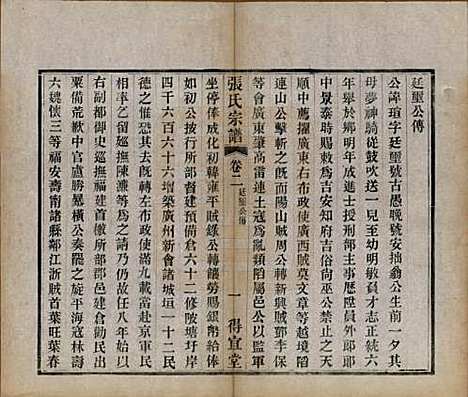 廷璽公傳
公諱瑄字廷璽號古愚晚號安拙翁公生前一夕其
母夢神騎從鼓吹送一兒至幼明敏員才志正統六
年舉於鄉明年成進士授刑部主事歷陞員外郎
中景泰時賜敕考為吉安知府有惠政吉民
止之天
順中薦擢廣東右布政使廣西賊莫文章等越境陷
連山公擊斬之而陽山賊周公轉新興賊鄧李保
等會廣東肇高雷連土寇為亂類陷屬邑公以監軍
張氏宗譜
卷二
廷璽公傳
一
得宜堂
坐停俸威化初韓雍平賊錄公轉饟勞賜銀幣給俸
如初公按行所部督建預備倉六十二修陂塘圩岸
四千六百六十六增築廣州新會諸城垣一十二民
德之惟恐其去既轉左布政使滿九載當赴京軍民
相率乞留巡撫陳濂等為之請乃仍故任八年始以
右副都御史巡撫福建首繳所部郡邑建倉勸民出
粟備荒歉中官盧勝暴橫公奏罷之旋平海寇林壽
六魏懷三等福安壽甯諸縣鄰江浙賊首葉旺葉春